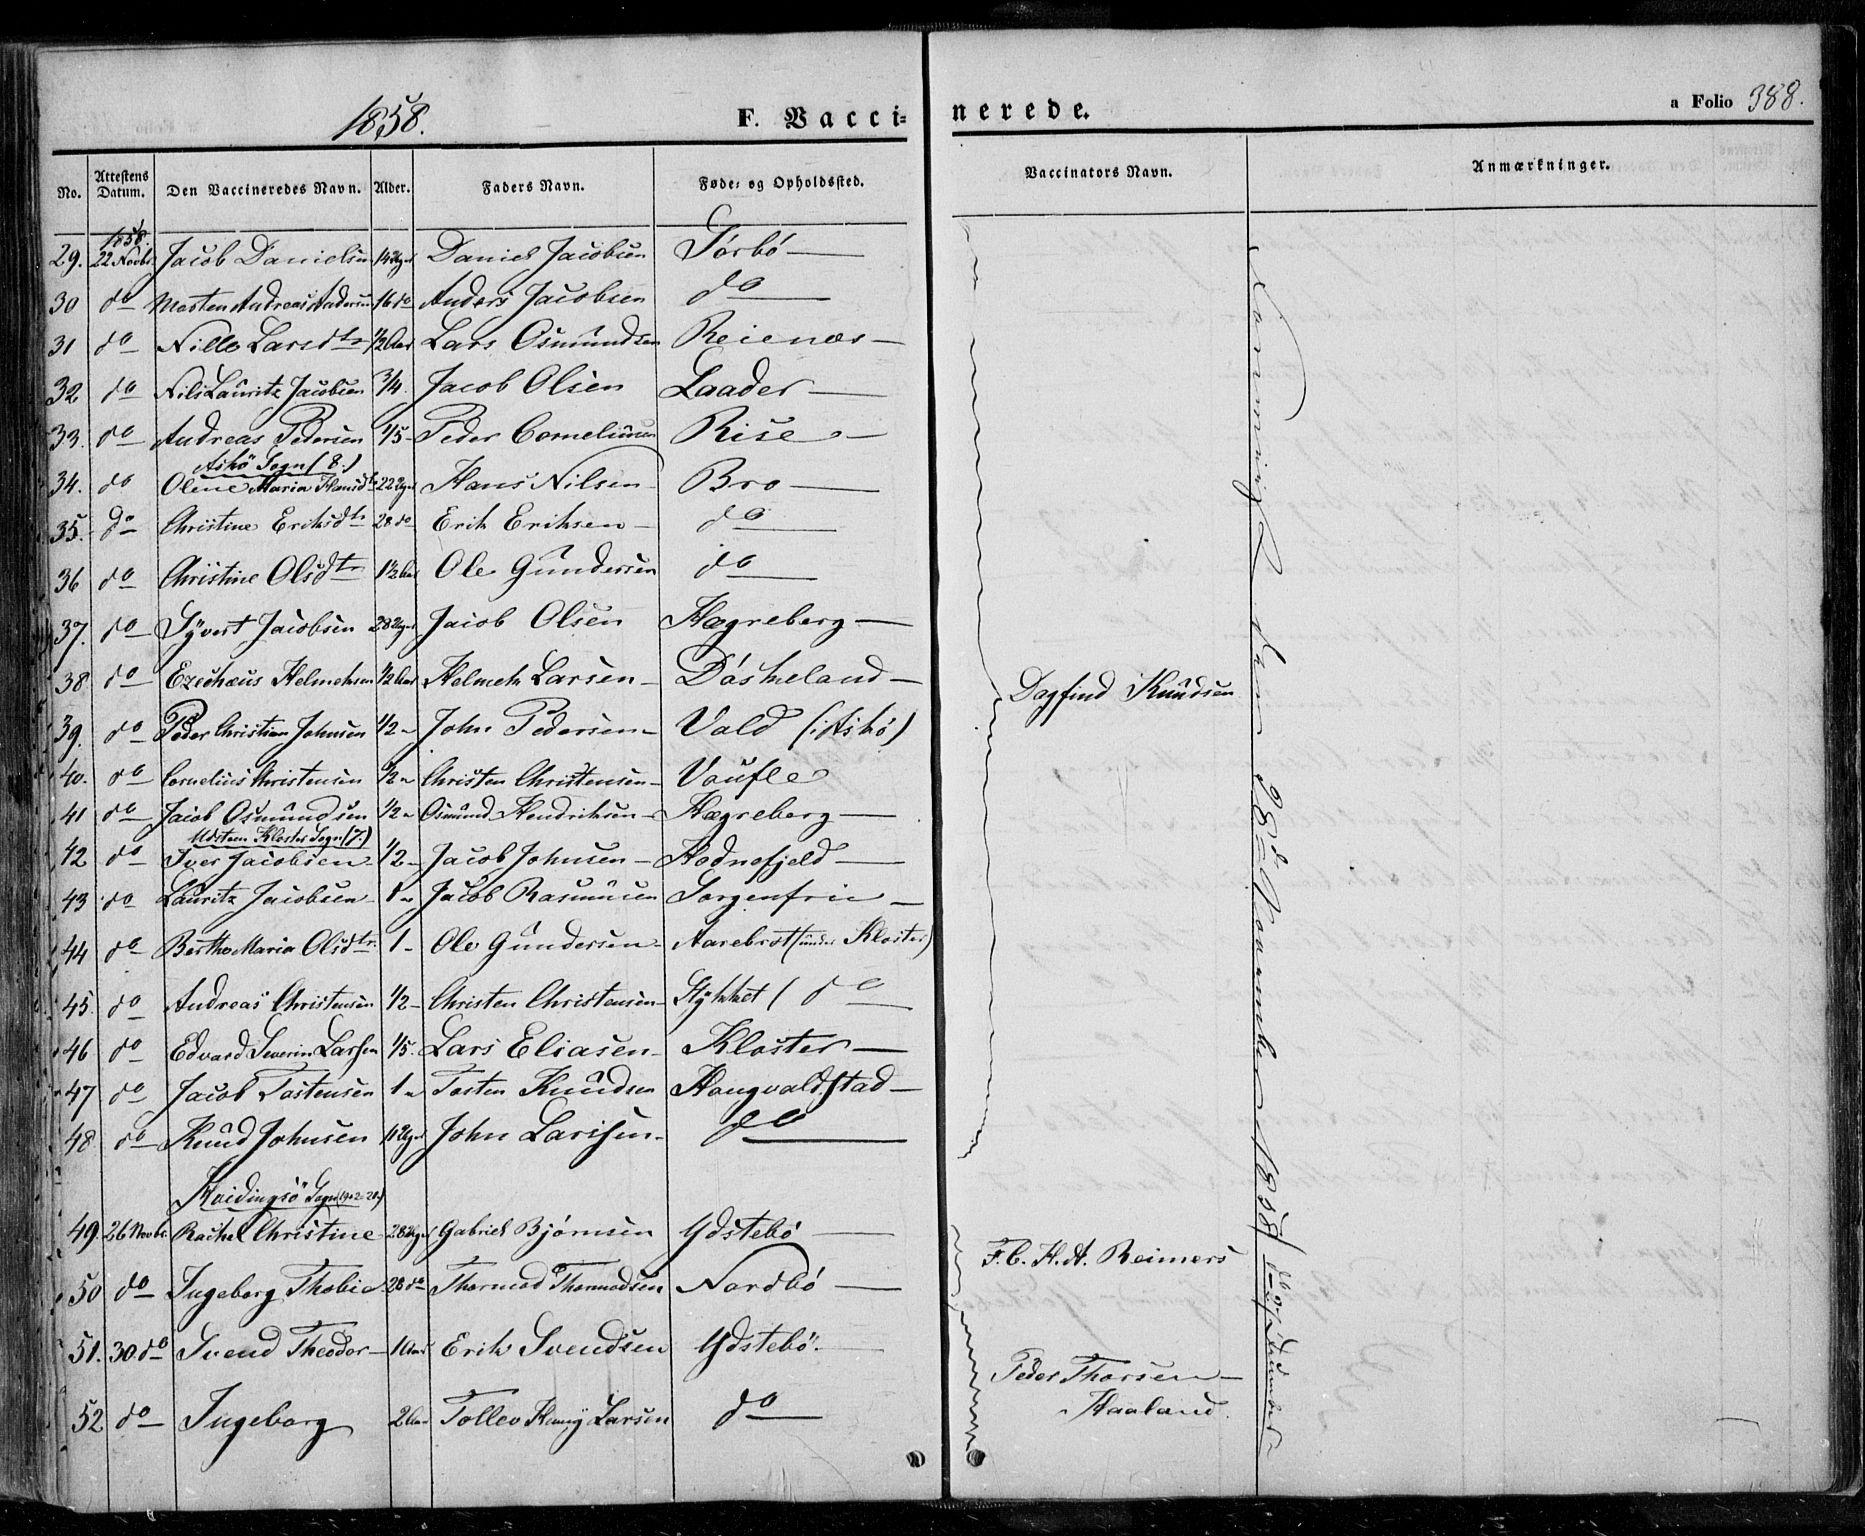 1858.
F. Vacci=
nerede.
a Folio 388.
No. Attestens Datum. Den Vaccineredes Navn. Alder. Faders Navn. Føde= og Opholdssted. Vaccinators Navn. Anmærkninger.
1858.
29. 22 Novbr Jacob Danielsen 14 Uger Daniel Jacobsen Sørbö
30 do Morten Andreas Andersen 16 do Anders Jacobsen do
31 do Nille Larsdtr 1/2 Aar Lars Osmundsen Reienæs
32 do Nils Lauritz Jacobsen 3/4. Jacob Olsen Laader
33. do Andreas Pedersen 1/5 Peder Corneliusen Rise
Askö Sogn (8.)
34. do Olene Maria Hansdtr 22 Uger Hans Nilsen Bro
35. do Christine Eriksdtr 28 do Erik Eriksen do
36 do Christine Olsdtr 1 1/2 Aar Ole Gundersen do
37. do Syvert Jacobsen 28 Uger Jacob Olsen Hægreberg
38. do Ezechæus Helmeksen 1/2 Aar Helmeth Larsen Döskeland
39. do Peder Christian Johnsen 1/2 John Pedersen Vald (i Askö)
40. do Cornelius Christensen 1/2 Christen Christensen Voufle
41 do Jacob Osmundsen 1/2 Osmund Hendriksen Hægreberg
Utstein Kloster Sogn (7.)
42 do Iver Jacobsen 1/2 Jacob Johnsen Hodnefjeld
43 do Lauritz Jacobsen 1 Jacob Rasmusen Sorgenfrie
44 do Berthe Maria Olsdtr. 1 Ole Gundersen Aarebrot (under Kloster)
45. do Andreas Christensen 1/2 Christen Christensen Stykket ( do
46 do Edvard Severin Larsen 1/5. Lars Eliasen Kloster
47 do Jacob Tostensen 1 Tosten Knudsen Hougvaldstad
48 do Knud Johnsen 12 Uger John Larssen do
Dagfind Knudsen
Sammingk den 28d November 1858
Kvidingsö Sogn
49. 26 Novbr. Rachel Christine 28 Uger Gabriel Bjørnsen Ydstebö
F. C. H. A. Reimers
50 do Ingeborg Thobie 28 do Thormod Thormodsen Nordbö
51. 30. do Svend Theodor 1 Aar Erik Svendsen Ydstebö.
Peder Thorsen
Haaland.
52 do Ingeborg 2 Aar Tollev Henrij Larsen do